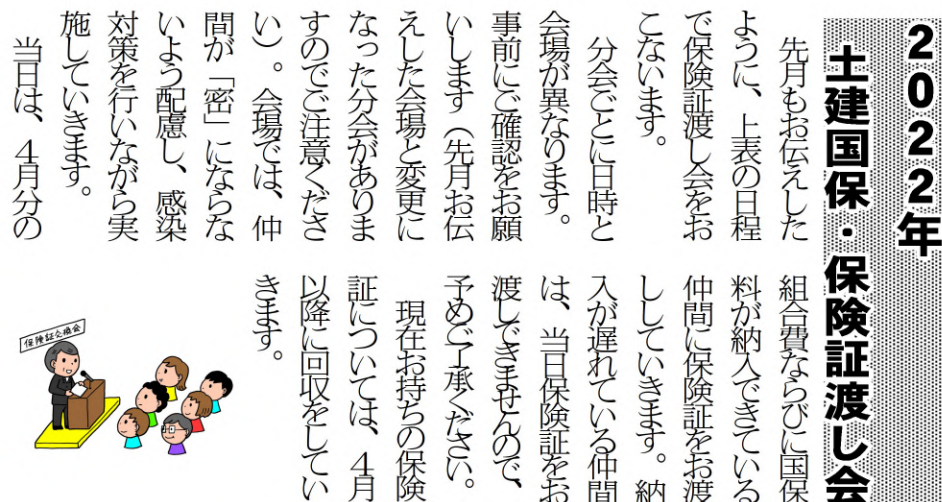 2022年
土建国保・保険証渡し会
先月もお伝えした
ように、上表の日程
で保険証渡し会をお
こないます。
分会ごとに日時と
会場が異なります。
事前にご確認をお願
いします（先月お伝
えした会場と変更に
なった分会がありま
すのでご注意くださ
い）。会場では、仲
間が「密」にならな
いよう配慮し、感染
対策を行いながら実
施していきます。
当日は、4月分の
組合費ならびに国保
料が納入できている
仲間に保険証をお渡
ししていきます。納
入が遅れている仲間
は、当日保険証をお
渡しできませんので、
予めご了承ください。
現在お持ちの保険
証については、4月
以降に回収をしてい
きます。
保険証交換会